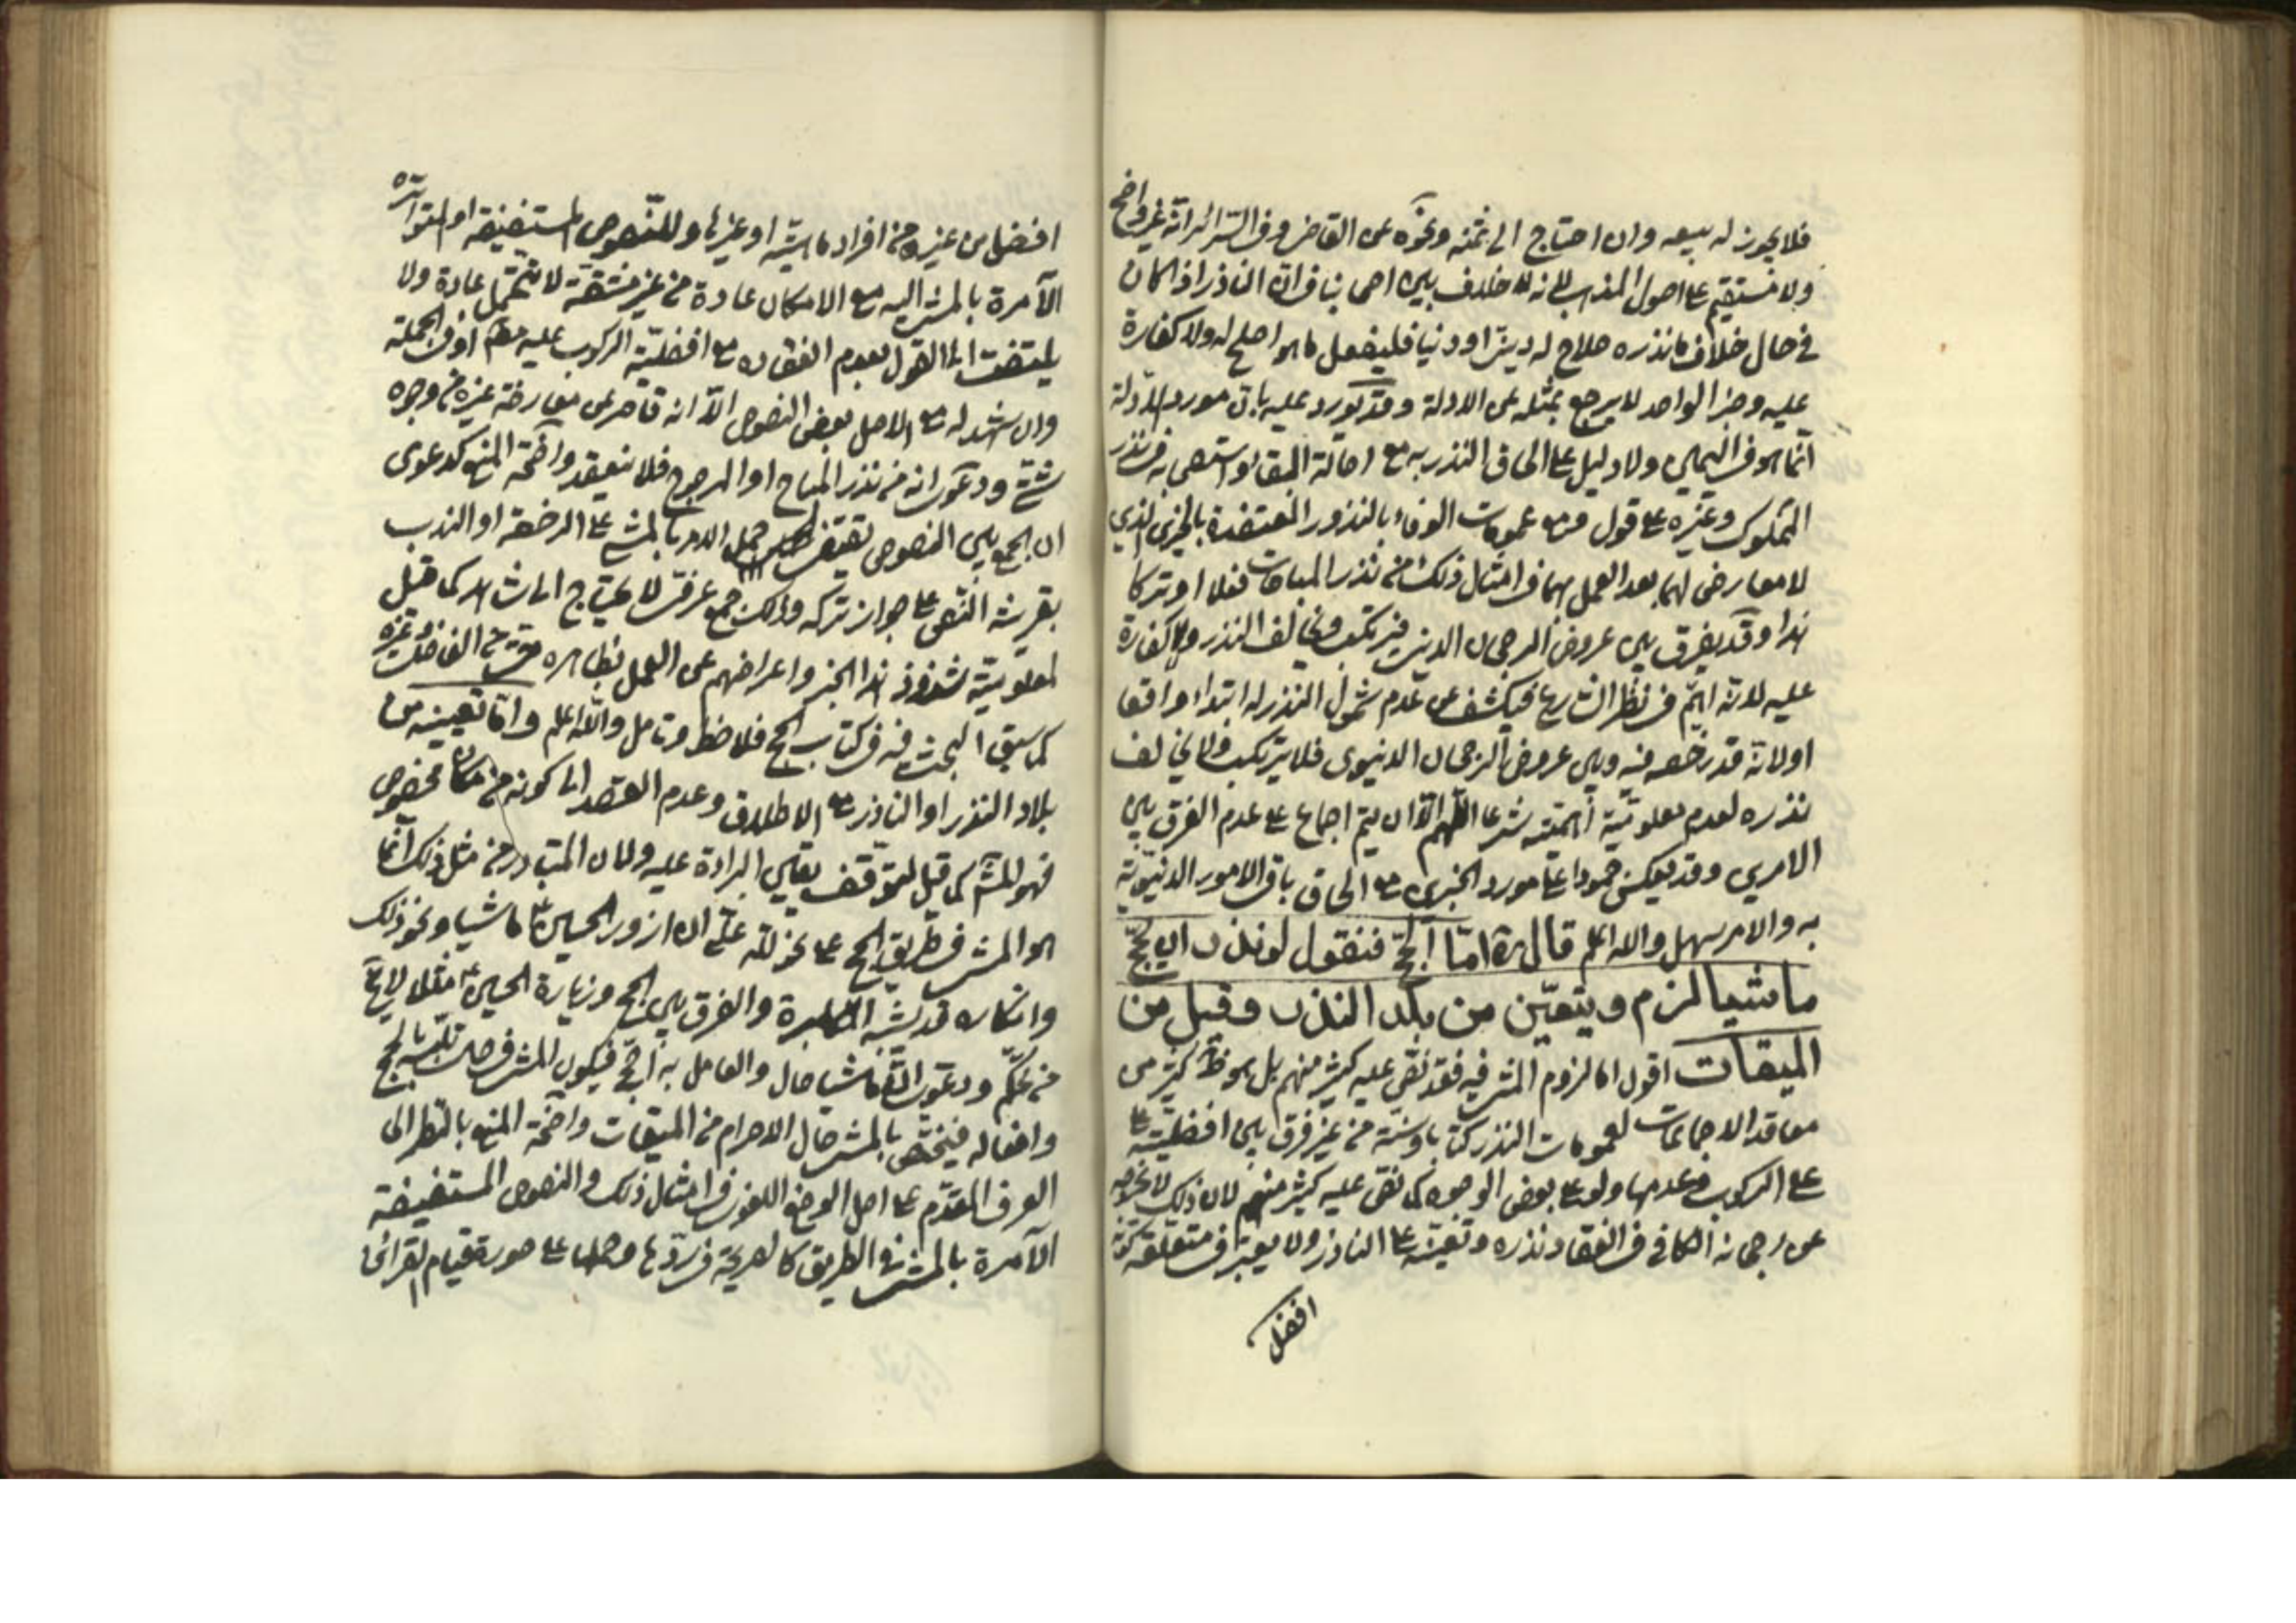 فلا يجوز له بيعه وان احتاج الى ثمنه ونحوه عن القاضى وفى السرائر انه غير واضح
ولا مستقيم على اصول المذهب لانه لا خلاف بين اصحابنا فى ان الناذر اذا كان
فى حال خلاف ما نذره صلاح له دينا او دنيا فليفعل ما هو اصلح له ولا كفارة
عليه وخبر الواحد لا يرجع بمثله عن الادلة وقد يورد عليه بان مورد الادلة
انما هو فى اليمين ولا دليل على الحاق النذر به مع اصالة البقاء واستصحابه فى نذر
المملوك وغيره على قول ومع عمومات الوفاء بالنذور المعتضدة بالخبرين الذي
لا معارض لهما بعد العمل بهما فى امثال ذلك من نذر المباحات فعلا او تركا
هذا وقد يفرق بين عروض الرجحان الدينى فيرتكب ويخالف النذر ولا كفارة
عليه لانه اهم فى نظر الشارع فيكشف عن عدم شمول النذر له ابتداء واقعا
او لانه قد رخصه فيه وبين عروض الرجحان الدنيوى فلا يرتكب ولا يخالف
نذره لعدم معلومية أهميته شرعا اللهم الا ان يتم اجماع على عدم الفرق بين
الامرين وقد يعكس جمودا على مورد الخبرين مع الحاق باقى الامور الدنيوية
به والامر سهل والله اعلم قال ره امّا الحجّ فنقول لو نذر ان يحجّ
ماشيا لزم ويتعيّن من بلد النذر وقيل من
الميقات اقول اما لزوم المشى فيه فقد نص عليه كثير منهم بل هو ظ كثير من
معاقد الاجماعات لعمومات النذر كتابا وسنة من غير فرق بين افضليته
على الركوب وعدمها ولو على بعض الوجوه كما نص عليه كثير منهم لان ذلك لا يخرجه
عن رجحانه الكافى فى انعقاد نذره وتعينه على الناذر ولا يعتبر فى متعلقه كونه
افضل
افضل من غيره من افراد ماهيته او غيرها وللنصوص المستفيضة او المتواترة
الآمرة بالمشى اليه مع الامكان عادة من غير مشقة لا تتحمل عادة ولا
يلتفت الى القول بعدم انعقاده مع افضلية الركوب عليه مطم او فى الجملة
وان شهد له مع الاصل بعض النصوص الا انه قاصر عن معارضة غيره من وجوه
شتى ودعوى انه من نذر المباح او المرجوح فلا ينعقد واضحة المنع كدعوى
ان الجمع بين النصوص تقتضى حمل الامر بالمشى على الرخصة او الندب
بقرينة النص على جواز تركه وذلك جمع عرفى لا يحتاج الى شاهد كما قيل
لمعلومية شذوذ هذا الخبر واعراضهم عن العمل بظاهره حتى من الفاضل وغيره
كما سبق البحث فيه فى كتاب الحج فلاحظ وتامل والله اعلم واما تعينه من
بلاد النذر او الناذر مع الاطلاق وعدم القصد الى كونه من مكان مخصوص
فهو للمش كما قيل لتوقف يقين البراءة عليه ولان المتبادر من مثل ذلك انما
هو المشى فى طريق الحج على نحو لله على ان ازور الحسين ع ماشيا ونحو ذلك
وانكاره قد يشبه المكابرة والفرق بين الحج وزيارة الحسين ع مثلا لا يخ
من تحكم ودعوى ان ماشيا حال والعامل به احج فيكون المشى فى حال تلبسه بالحج
وافعاله فيختص بالمشى حال الاحرام من الميقات واضحة المنع بالنظر الى
العرف المقدم على اصل الوضع اللغوى فى امثال ذلك والنصوص المستفيضة
الآمرة بالمشى فى الطريق كالصريحة فى ردها وحملها على صورة قيام القرائن